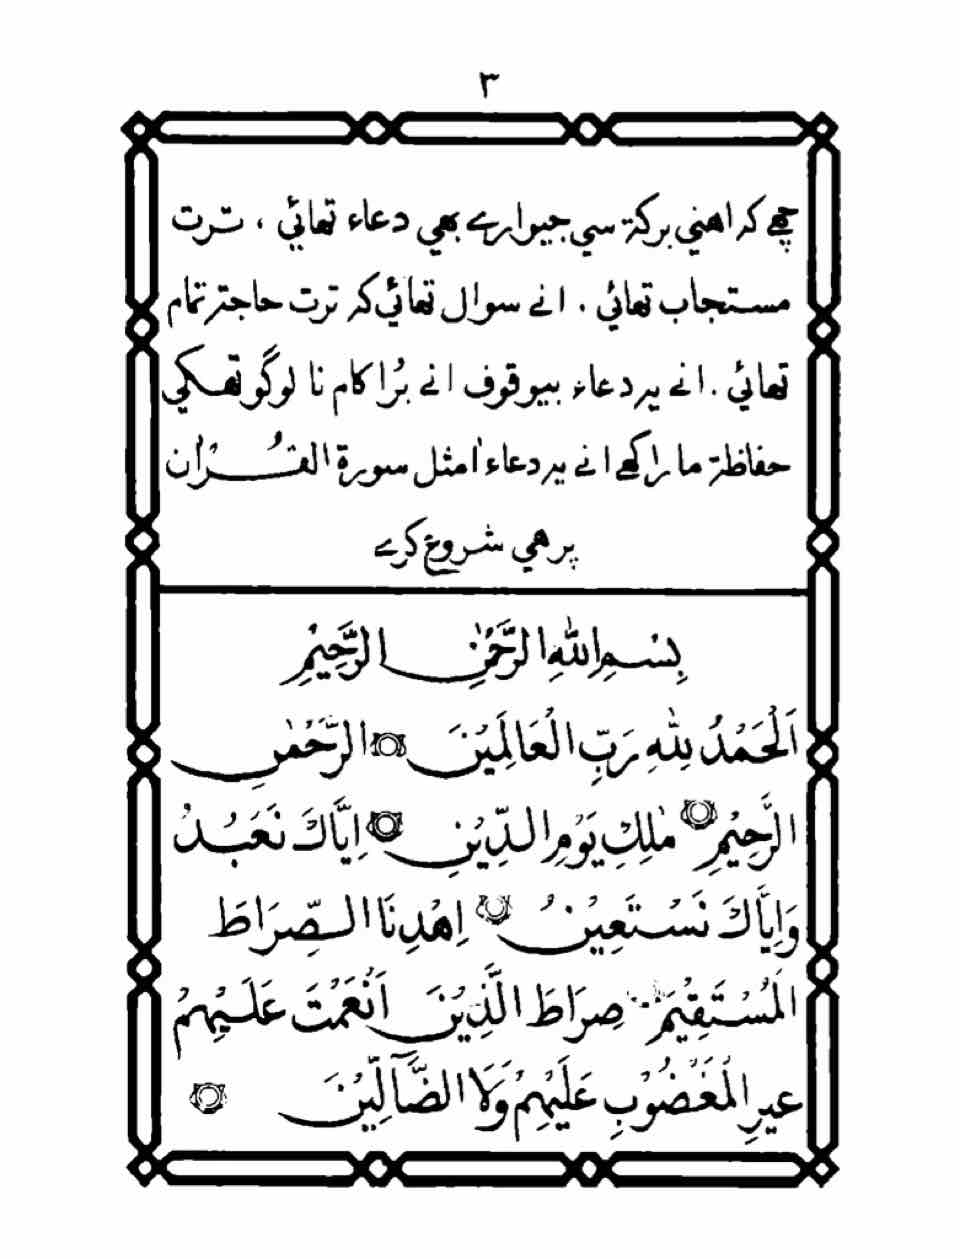 ٣
چھے كه اهني بركة سي جيوارے بھي دعاء تھائي ، ترت
مستجاب تھائي . انے سوال تھائي كه ترت حاجة تمام
تھائي . انے يه دعاء بيوقوف انے بُرا كام نا لوگو تھكي
حفاظة ما راكھے انے يه دعاء اُمثل سورة القُراٰن
پرهي شروع كرے
بِسْمِ اللهِ الرَّحْمٰنِ الرَّحِيْمِ
اَلْحَمْدُ لِلّٰهِ رَبِّ الْعَالَمِيْنَ ۝ الرَّحْمٰنِ
الرَّحِيْمِ ۝ مٰلِكِ يَوْمِ الدِّيْنِ ۝ اِيَّاكَ نَعْبُدُ
وَاِيَّاكَ نَسْتَعِيْنُ ۝ اِهْدِنَا الصِّرَاطَ
الْمُسْتَقِيْمَ ۝ صِرَاطَ الَّذِيْنَ اَنْعَمْتَ عَلَيْهِمْ
غيرِ الْمَغْضُوْبِ عَلَيْهِمْ وَلَا الضَّآلِّيْنَ ۝